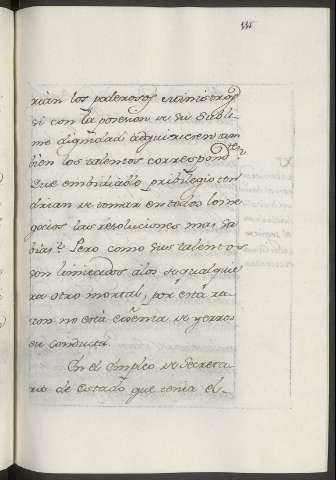 rián los poderosos Ministros,
si con la posesion de su subli-
me dignidad adquiriesen tam
bien los talentos correspond.tes
Que embidiable privilegio ten
drian de tomar en todos los ne
gocios las resoluciones mas sa
bias? Pero como sus talentos
son limitados á los de qualquie
ra otro mortal, por esta ra-
zon no está esenta de yerros
su conducta.
En el empleo de Secreta-
rio de Estado, que tenia el-